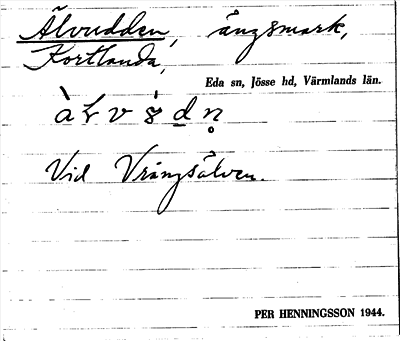 Älvudden, ängsmark,
Kortlanda,
Eda sn, Jösse hd, Värmlands län.
Vid Vrångsälven.
PER HENNINGSSON 1944.